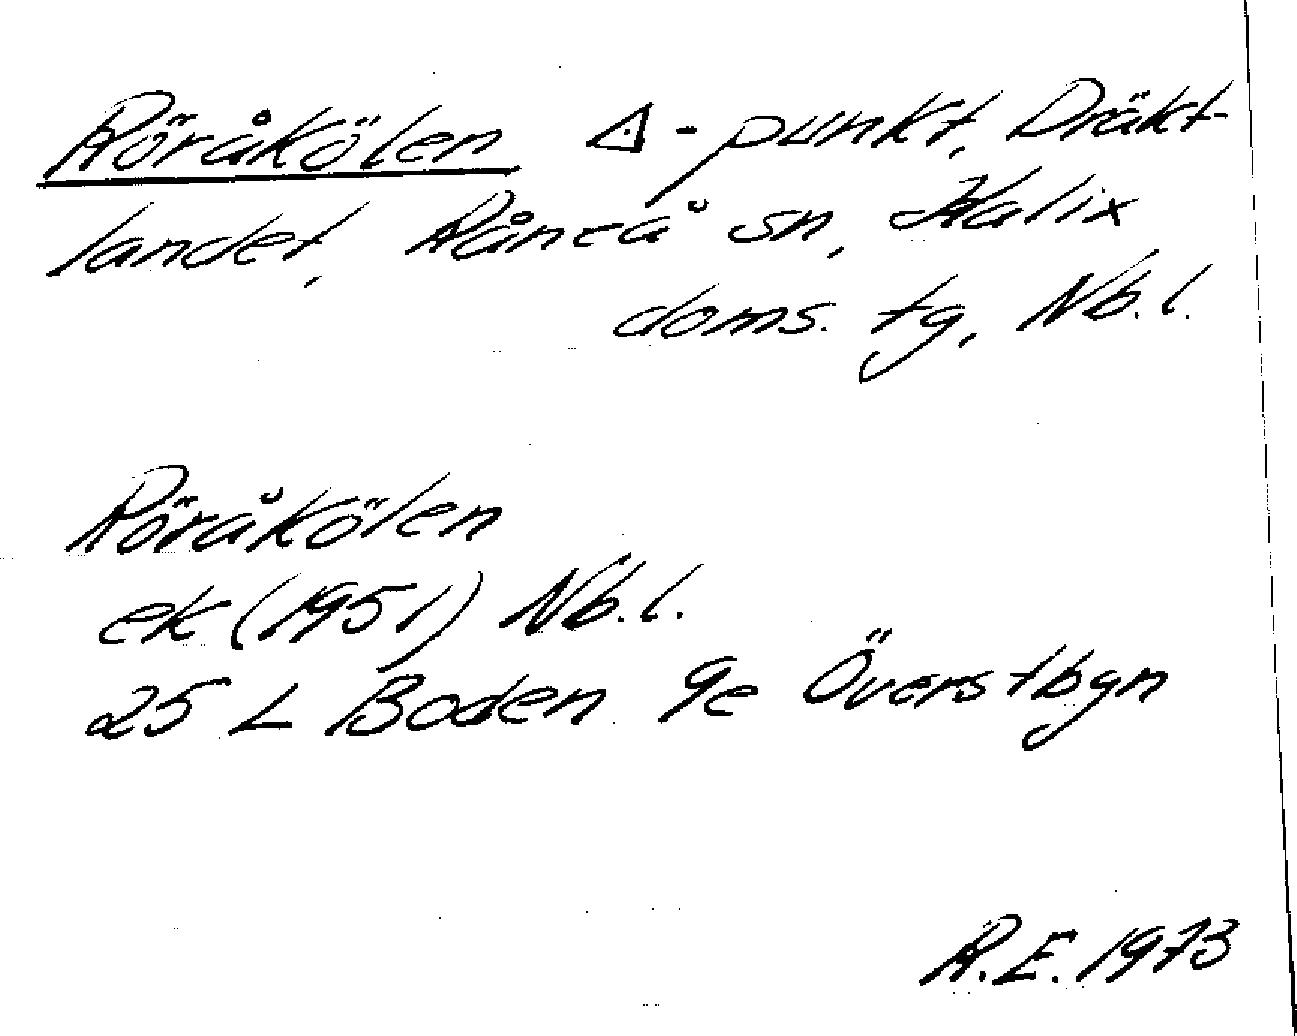 Röråkölen △-punkt, Dräkt-
landet, Råneå sn, Kalix
doms. tg, Nb.l.
Röråkölen
ek (1951) Nb.l.
25 L Boden 9e Överstbyn
R.E. 1973